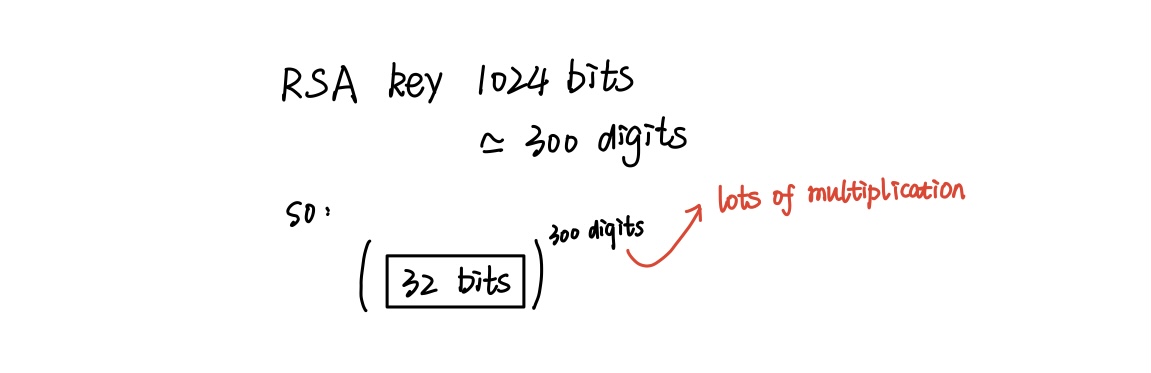 RSA key 1024 bits
≃ 300 digits
so:
( 32 bits )^300 digits
lots of multiplication